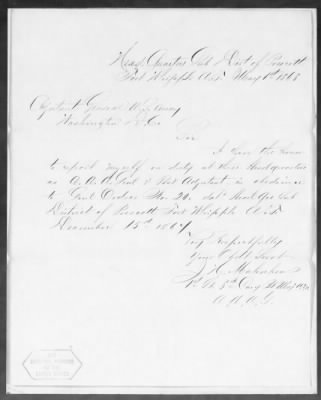 Head Quarters Sub Dist of Prescott
Fort Whipple A.T. May 1st 1868
Adjutant General U.S. Army
Washington D.C.
Sir
I have the honor
to report myself on duty at these Headquarters
as A.A.A. Genl & Post Adjutant in obedience
to Genl Orders No. 24. dat Head Qrs Sub
District of Prescott Fort Whipple A.T.
December 15th 1867
Very Respectfully
Your Obdt Servt
J. H.
1st Lt 8th Cavy
A.A.A.G.
THE NATIONAL ARCHIVES
OF THE
UNITED STATES